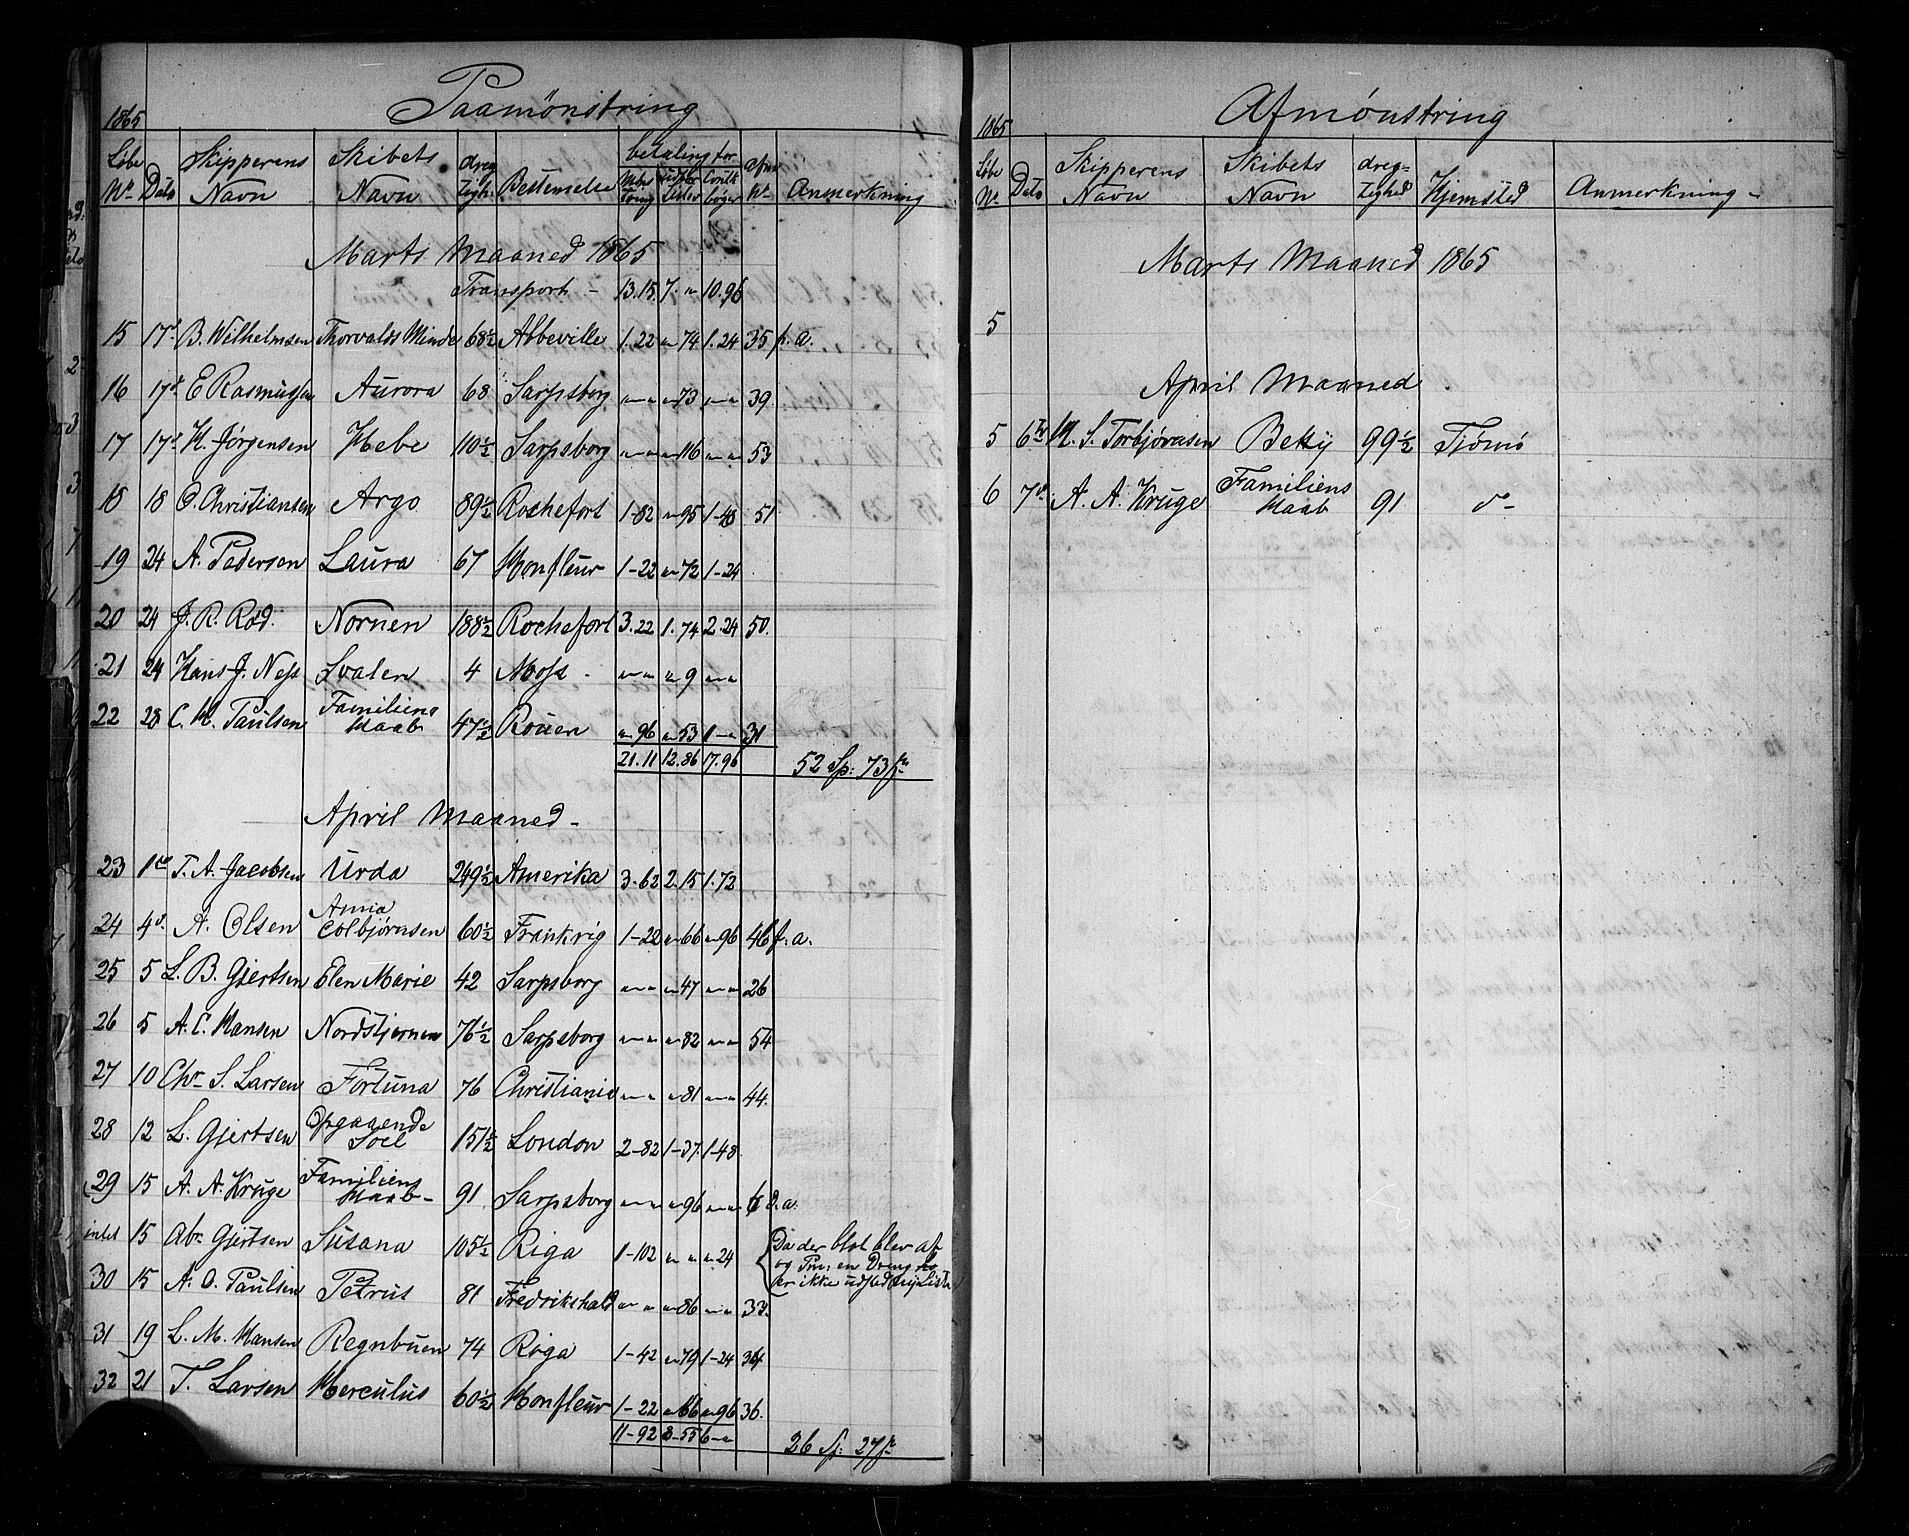 1865 Paamönstring
Löbe Skipperens Skibets dreg betaling for Afm
No Dato Navn Navn tigh: Bestemelse Møn string Listen Conlk bøger No Anmerkning
Marts Maaned 1865
Transport - 13.15 7. " 10.96
15 17d B. Wilhelmsen Thorvalds Minde 68½ Abbeville 1.22 " 74 1.24 35 f. a.
16 17d E Rasmussen Aurora 68 Sarpsborg " - " " 73 " - " 39.
17 17d H. Jørgensen Hebe 110½ Sarpsborg " - " " 116 " - " 53
18 18 O. Christiansen Argo 89½ Rochefort 1-82 " 95 1-48 51
19 24 A. Pedersen Laura 67 Honfleur 1-22 " 72 1-24
20 24 J. R. Röd. Nornen 188½ Rochefort 3.22 1.74 2.24 50.
21 24 Hans J. Ness Svalen 4 Moss - " - " " 9 " - "
22 28 C. H. Paulsen Familiens Haab 47½ Rouen " 96 " 53 1 - " 31
21.11 12.86 17.96 52 Sp: 73 s
April Maaned -
23 1ste T. A. Jacobsen Urda 249½ Amerika 3.62 2.15 1.72
24 4d. A. Olsen Anna Colbjørnsen 60½ Frankrig 1-22 " 66 " 96 46 f. a.
25 5 L. B. Gjertsen Elen Marie 42 Sarpsborg " - " " 47 " - " 26
26 5 A. C. Hansen Nordstjernen 76½ Sarpsborg " - " " 82 " - " 54
27 10 Chr. S. Larsen Fortuna 76 Christiania " - " " 81 " - " 44.
28 12 L. Gjertsen Opgaaende Soel 151½ London 2-82 1-37. 1-48.
29 15 A. A. Kruge Familiens Haab - 91 Sarpsborg " - " " 96 " - " 6 d. a.
intet 15 Abr. Gjertsen Susana 105½ Riga 1-102 " " " 24 Da der blot blev af
og Paa: en Dreng
er ikke udsted ny Liste
30 15 A. O. Paulsen Petrus 81 Fredrikshald " - " " 86 " - " 33.
31 19 L. M. Hansen Regnbuen 74 Riga 1-42 " 79 1-24 34
32 21 T. Larsen Herculus 60½ Honfleur 1-22 " 66 " 96 36.
11-92 8-55 6 - " 26 Sp: 27 s
1865 Afmønstring
Löbe Skipperens Skibets dreg=
No Dato Navn Navn tighed Hjemsted Anmerkning -
Marts Maaned 1865
5
April Maaned
5 6te S. Torbjørnsen Beksy 99½ Tjømø
6 7d. A. A. Kruge Familiens Haab 91 do -